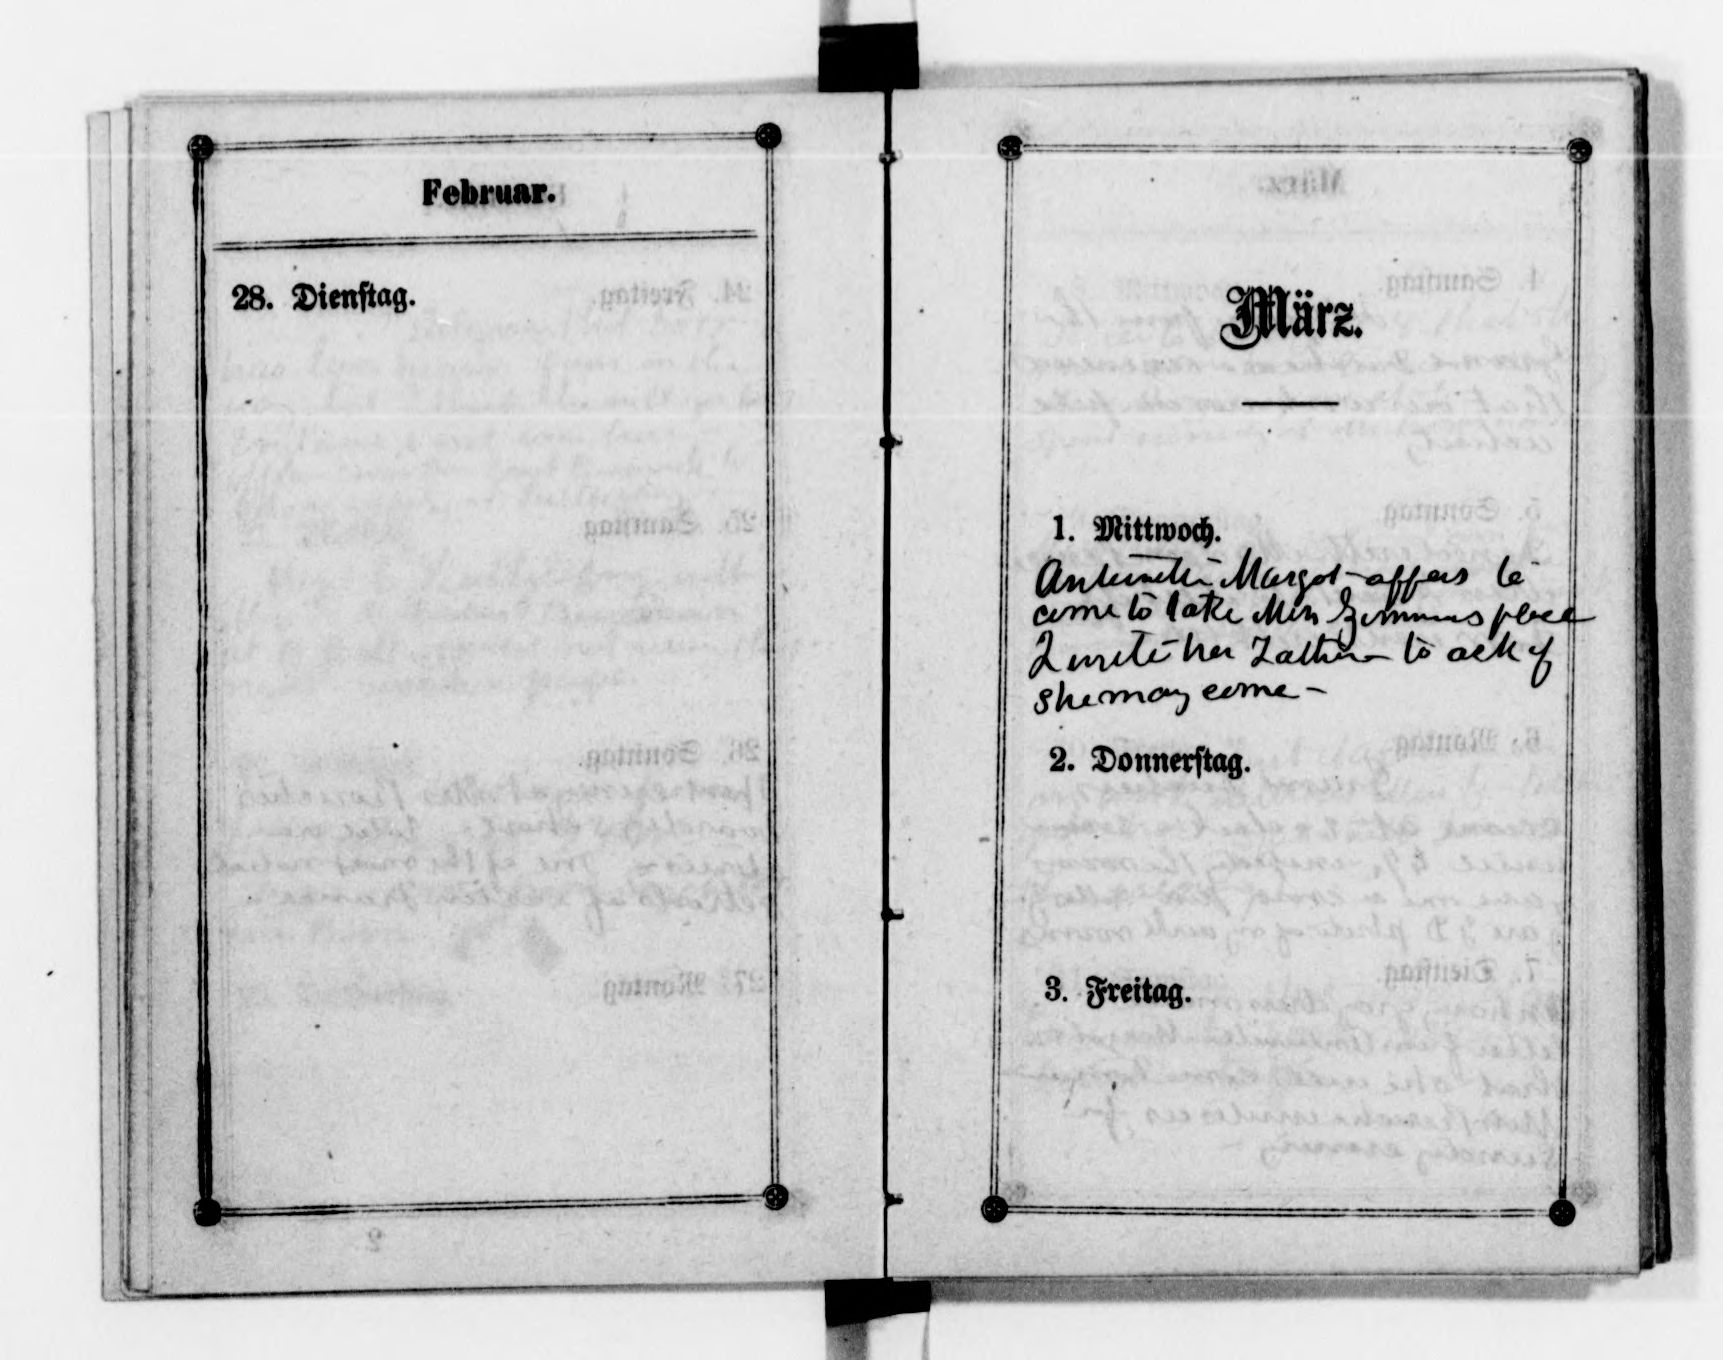 Februar.
28. Dienstag.
März.
1. Mittwoch.
Antoinette Margot offers to
come to take Miss Zimmers place
I write her Father to ask if
she may come –
2. Donnerstag.
3. Freitag.